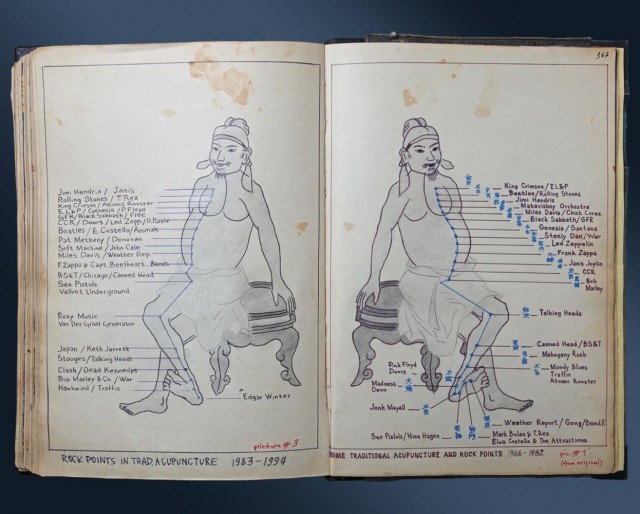 Jimi Hendrix / Janis
Rolling Stones / T. Rex
King Crimson / Atomic Rooster
E L & P / Genesis / P Floyd
GFR / Black Sabbath / Free
CCR / Doors / Led Zepp / D. Purple
Beatles / E. Costello / Animals
Pat Metheny / Donovan
Soft Machine / John Cale
Miles Davis / Weather Rep.
F. Zappa & Capt. Beefheart Bands
BS&T / Chicago / Canned Head
Sex Pistols
Velvet Underground
Roxy Music
Van Der Graaf Generator
Japan / Keth Jarrett
Stooges / Talking Heads
Clash / Dead Kennedys
Bob Marley & Co / War
Hawkwind / Traffic
Edgar Winter
picture # 3
ROCK POINTS IN TRAD. ACUPUNCTURE 1983-1994
367
King Crimson / EL&P
Beatles / Rolling Stones
Jimi Hendrix
Mahavishny Orchestra
Miles Davis / Chick Corea
Black Sabbath / GFR
Genesis / Santana
Steely Dan / War
Led Zeppelin
Frank Zappa
Janis Joplin
CCR
Bob
Marley
Talking Heads
Canned Head / BS&T
Mahogany Rush
Pink Floyd
Doors
Moody Blues
Traffic
Atomic Rooster
Madness
Devo
John Mayall
Weather Report / Gong /
Sex Pistols / Nina Hagen
Mark Bolan & T. Rex
Elvis Costello & The Attractions
SOME TRADITIONAL ACUPUNCTURE AND ROCK POINTS 1966-1982
pic. # 1
(from original)